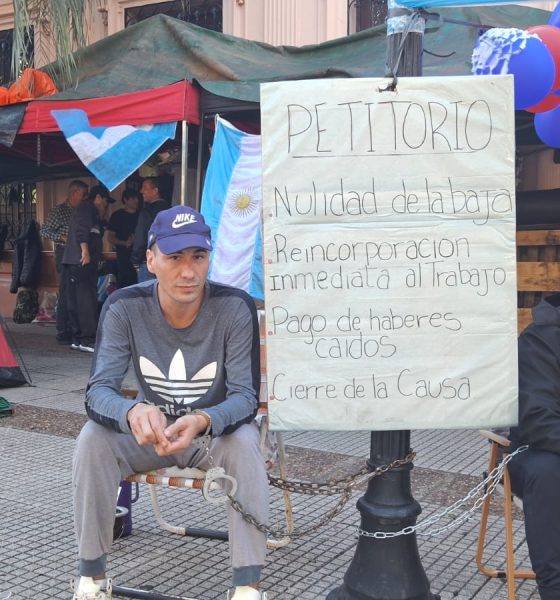 NIKE
adidas
PETITORIO
Nulidad de la baja
Reincorporación
inmediata al Trabajo
Pago de haberes
caidos
Cierre de la Causa